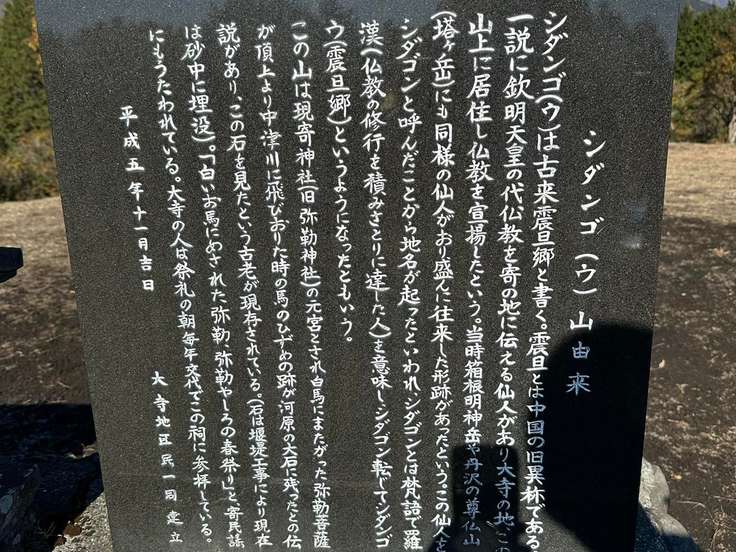 シダンゴ(ウ)山由来
シダンゴ(ウ)は古来震旦郷と書く。震旦とは中国の旧異称である
一説に欽明天皇の代仏教を寄の地に伝える仙人があり大寺の地、この
山上に居住し仏教を宣揚したという。当時箱根明神岳や丹沢の尊仏山
(塔ヶ岳)にも同様の仙人がおり盛んに往来した形跡があったという。この仙人を
シダゴンと呼んだことから地名が起ったといわれ、シダゴンとは梵語で羅
漢(仏教の修行を積みさとりに達した人)を意味し、シダゴン転じてシダンゴ
ウ(震旦郷)というようになったともいう。
この山は現寄神社(旧弥勒神社)の元宮とされ白馬にまたがった弥勒菩薩
が頂上より中津川に飛びおりた時の馬のひずめの跡が河原の大石に残ったとの伝
説があり、この石を見たという古老が現存されている。(石は堰堤工事により現在
は砂中に埋没)。「白いお馬にめされた弥勒・弥勒やしろの春祭り」と寄民謡
にもうたわれている。大寺の人は祭礼の朝毎年交代でこの祠に参拝している。
平成五年十一月吉日
大寺地区民一同建立